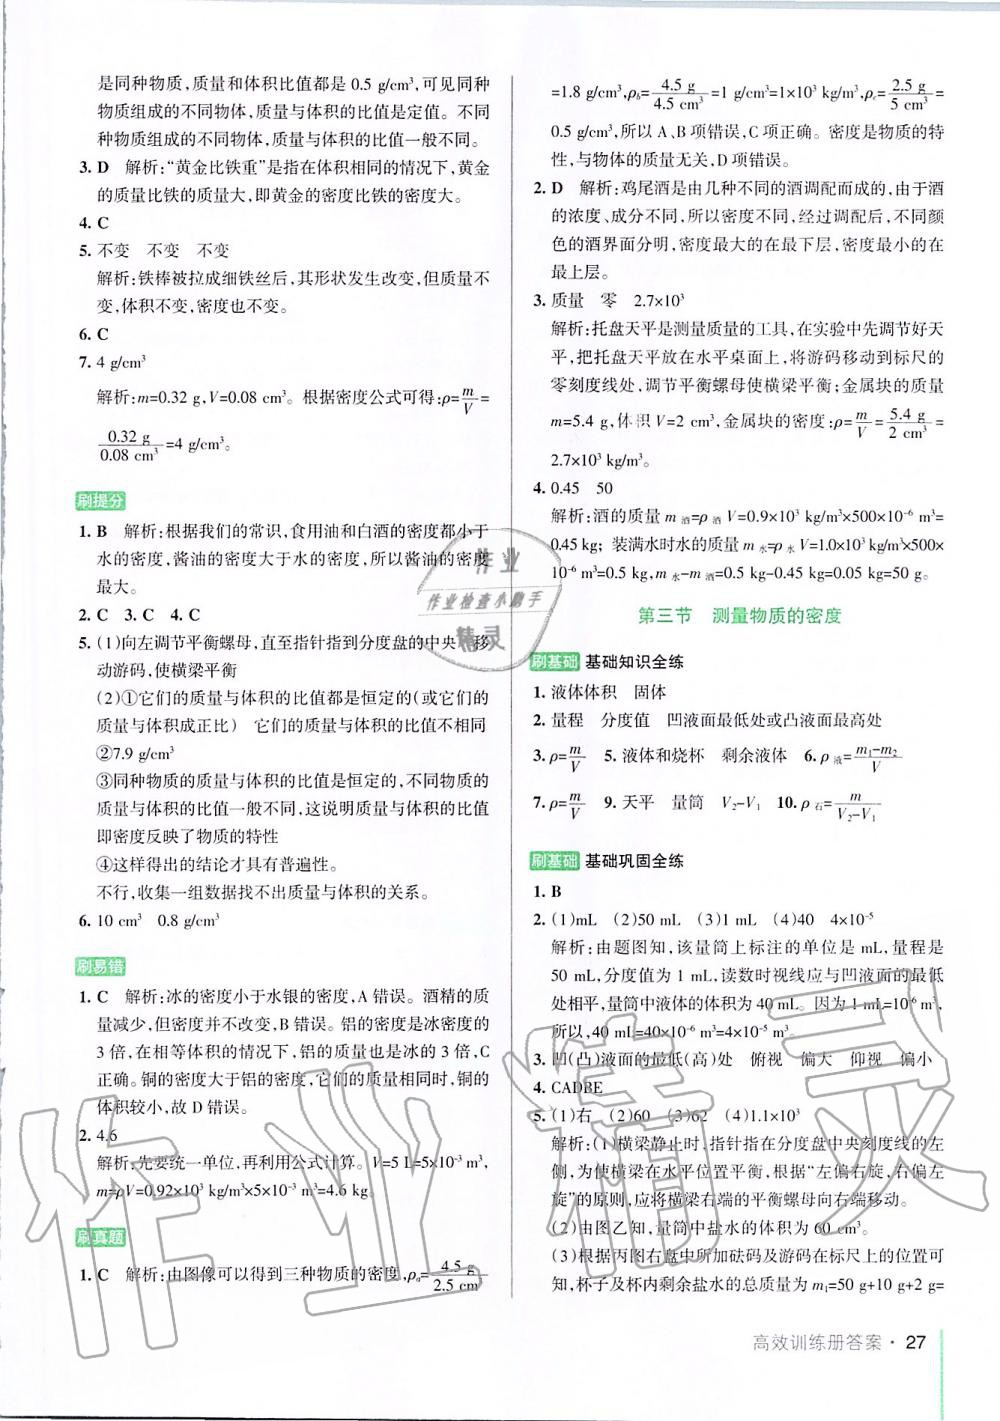 是同种物质,质量和体积比值都是 0.5 g/cm³,可见同种
物质组成的不同物体,质量与体积的比值是定值。不同
种物质组成的不同物体,质量与体积的比值一般不同。
3. D 解析:“黄金比铁重”是指在体积相同的情况下,黄金
的质量比铁的质量大,即黄金的密度比铁的密度大。
4. C
5. 不变 不变 不变
解析:铁棒被拉成细铁丝后,其形状发生改变,但质量不
变,体积不变,密度也不变。
6. C
7. 4 g/cm³
解析:m=0.32 g,V=0.08 cm³。根据密度公式可得:ρ=m/V=
0.32 g/0.08 cm³=4 g/cm³。
刷提分
1. B 解析:根据我们的常识,食用油和白酒的密度都小于
水的密度,酱油的密度大于水的密度,所以酱油的密度
最大。
2. C 3. C 4. C
5. (1)向左调节平衡螺母,直至指针指到分度盘的中央 移
动游码,使横梁平衡
(2)①它们的质量与体积的比值都是恒定的(或它们的
质量与体积成正比) 它们的质量与体积的比值不相同
②7.9 g/cm³
③同种物质的质量与体积的比值是恒定的,不同物质的
质量与体积的比值一般不同,这说明质量与体积的比值
即密度反映了物质的特性
④这样得出的结论才具有普遍性。
不行,收集一组数据找不出质量与体积的关系。
6. 10 cm³ 0.8 g/cm³
刷易错
1. C 解析:冰的密度小于水银的密度,A 错误。酒精的质
量减少,但密度并不改变,B 错误。铝的密度是冰密度的
3 倍,在相等体积的情况下,铝的质量也是冰的 3 倍,C
正确。铜的密度大于铝的密度,它们的质量相同时,铜的
体积较小,故 D 错误。
2. 4.6
解析:先要统一单位,再利用公式计算。V=5 L=5×10⁻³ m³,
m=ρV=0.92×10³ kg/m³×5×10⁻³ m³=4.6 kg。
刷真题
1. C 解析:由图像可以得到三种物质的密度,ρₐ=4.5 g/2.5 cm³
=1.8 g/cm³,ρb=4.5 g/4.5 cm³=1 g/cm³=1×10³ kg/m³,ρc=2.5 g/5 cm³=
0.5 g/cm³,所以 A、B 项错误,C 项正确。密度是物质的特
性,与物体的质量无关,D 项错误。
2. D 解析:鸡尾酒是由几种不同的酒调配而成的,由于酒
的浓度、成分不同,所以密度不同,经过调配后,不同颜
色的酒界面分明,密度最大的在最下层,密度最小的在
最上层。
3. 质量 零 2.7×10³
解析:托盘天平是测量质量的工具,在实验中先调节好天
平,把托盘天平放在水平桌面上,将游码移动到标尺的
零刻度线处,调节平衡螺母使横梁平衡;金属块的质量
m=5.4 g,体积 V=2 cm³,金属块的密度:ρ=m/V=5.4 g/2 cm³=
2.7×10³ kg/m³。
4. 0.45 50
解析:酒的质量 m酒=ρ酒V=0.9×10³ kg/m³×500×10⁻⁶ m³=
0.45 kg; 装满水时水的质量 m水=ρ水V=1.0×10³ kg/m³×500×
10⁻⁶ m³=0.5 kg,m水-m酒=0.5 kg-0.45 kg=0.05 kg=50 g。
第三节 测量物质的密度
刷基础 基础知识全练
1. 液体体积 固体
2. 量程 分度值 凹液面最低处或凸液面最高处
3. ρ=m/V 5. 液体和烧杯 剩余液体 6. ρ液=(m₁-m₂)/V
7. ρ=m/V 9. 天平 量筒 V₂-V₁ 10. ρ石=m/(V₂-V₁)
刷基础 基础巩固全练
1. B
2. (1)mL (2)50 mL (3)1 mL (4)40 4×10⁻⁵
解析:由题图知,该量筒上标注的单位是 mL,量程是
50 mL,分度值为 1 mL,读数时视线应与凹液面的最低
处相平,量筒中液体的体积为 40 mL。因为 1 mL=10⁻⁶ m³,
所以,40 mL=40×10⁻⁶ m³=4×10⁻⁵ m³。
3. 凹(凸)液面的最低(高)处 俯视 偏大 仰视 偏小
4. CADBE
5. (1)右 (2)60 (3)62 (4)1.1×10³
解析:(1)横梁静止时,指针指在分度盘中央刻度线的左
侧,为使横梁在水平位置平衡,根据“左偏右旋,右偏左
旋”的原则,应将横梁右端的平衡螺母向右端移动。
(2)由图乙知,量筒中盐水的体积为 60 cm³。
(3)根据丙图右盘中所加砝码及游码在标尺上的位置可
知,杯子及杯内剩余盐水的总质量为 m₁=50 g+10 g+2 g=
高效训练册答案·27
作业
作业检查小助手
精灵
作业精灵